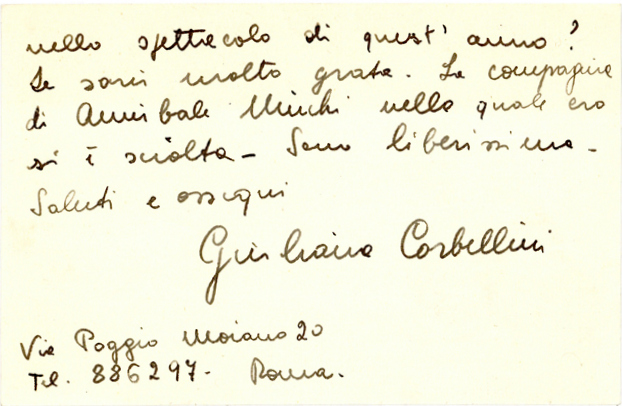 nello spettacolo di quest' anno?
Le sarei molto grata. La compagnia
di Annibale Ninchi nella quale ero
si è sciolta - Sono liberissima -
Saluti e ossequi
Giuliana Corbellini
Via Poggio Moiano 20
Tel. 886297. Roma.